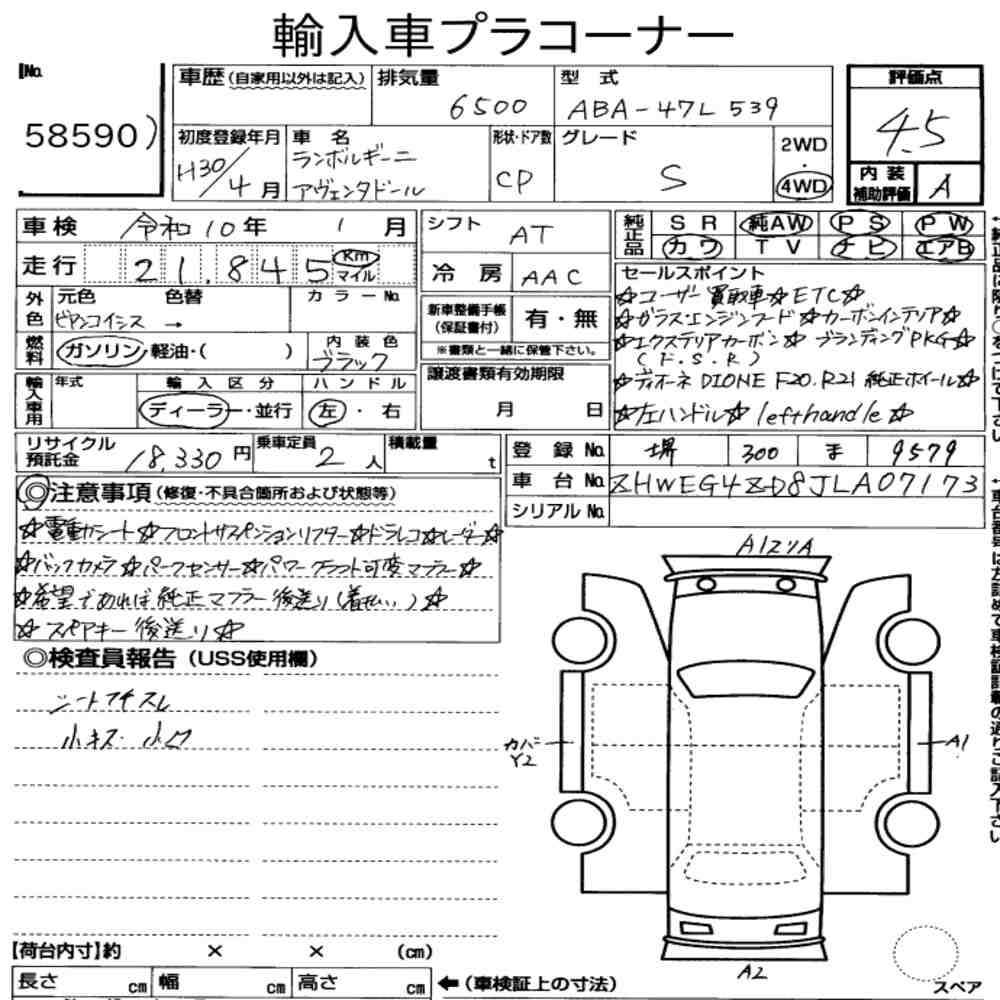 輸入車プラコーナー
No.
58590)
車歴 (自家用以外は記入)
排気量
6500
型 式
ABA-47L539
評価点
4.5
初度登録年月
H30/4月
車 名
ランボルギーニ
アヴェンタドール
形状・ドア数
CP
グレード
S
2WD
・
4WD
内 装
補助評価
A
車検 令和10年 1月
シフト AT
純正品
SR 純AW PS PW
カワ TV ナビ エアB
走行 21,845 Km
マイル
冷 房 AAC
セールスポイント
☆ユーザー買取車☆ETC☆
☆ガラスエンジンフード☆カーボンインテリア☆
☆エクステリアカーボン☆ ブランディングPKG☆
(F.S.R)
☆ディオーネ DIONE F20.R21 純正ホイール☆
☆左ハンドル☆ lefthandle☆
外色
元色 色替 カラーNo.
ビアンコイシス →
新車整備手帳
(保証書付)
有・無
※書類と一緒に保管下さい。
燃料
ガソリン・軽油・( )
内 装 色
ブラック
譲渡書類有効期限
月 日
輸入車用
年式
輸 入 区 分
ディーラー・並行
ハ ン ド ル
左・右
リサイクル
預託金
18,330円
乗車定員
2人
積載量
t
登 録 No. 堺 300 ま 9579
車 台 No. ZHWEG4ZD8JLA07173
シリアル No.
◎注意事項 (修復・不具合箇所および状態等)
☆電動シート☆フロントサスペンションリフター☆ドラレコ☆レーダー☆
☆バックカメラ☆パークセンサー☆パワークラフト可変マフラー☆
☆希望であれば純正マフラー後送り(着払い)☆
☆スペアキー後送り☆
◎検査員報告 (USS使用欄)
シートフチスレ
小キズ・小凹
A1ZリA
カバー
Y2
A1
A2
スペア
【荷台内寸】約 × × (cm)
長さ cm 幅 cm 高さ cm
← (車検証上の寸法)